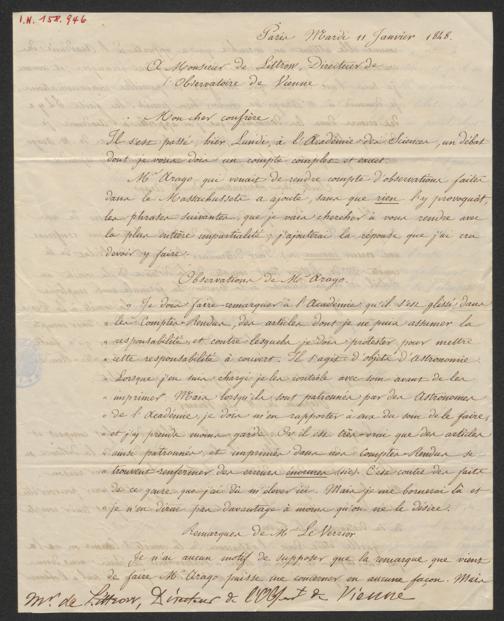 I.N. 158.946
Paris Mardi 11 Janvier 1848.
A Monsieur de Littrow, Directeur de
l'Observatoire de Vienne
Mon cher confrère
Il s'est passé, hier Lundi, à l'Académie des Sciences, un débat
dont je vous dois un compte complet et exact.
Mr Arago qui venait de rendre compte d'observations faites
dans le Massachussets a ajouté, sans que rien l'y provoquât,
les phrases suivantes, que je vais chercher à vous rendre avec
la plus entière impartialité; j'ajouterai la réponse que j'ai cru
devoir y faire.
Observations de Mr Arago.
" Je dois faire remarquer à l'Académie qu'il s'est glissé dans
" les Comptes-Rendus, des articles dont je ne puis assumer la
" responsabilité, et contre lesquels je dois protester pour mettre
" cette responsabilité à couvert. Il s'agit d'objets d'Astronomie.
" Lorsque j'en suis chargé je les contrôle avec soin avant de les
" imprimer. Mais lorsqu'ils sont patronnés par des Astronomes
" de l'Académie, je dois m'en rapporter à eux du soin de le faire,
" et j'y prends moins garde. Or il est très-vrai que des articles
" ainsi patronnés, et imprimés dans nos Comptes-Rendus se
" trouvent renfermer des erreurs énormes (sic). C'est contre des faits
" de ce genre que j'ai dû m'élever ici. Mais je me bornerai là et
" je n'en dirai pas davantage à moins qu'on ne le désire.
Remarques de Mr LeVerrier
Je n'ai aucun motif de supposer que la remarque que vient
de faire Mr Arago puisse me concerner en aucune façon. Mais
Mr. de Littrow, Directeur de l'Obst de Vienne